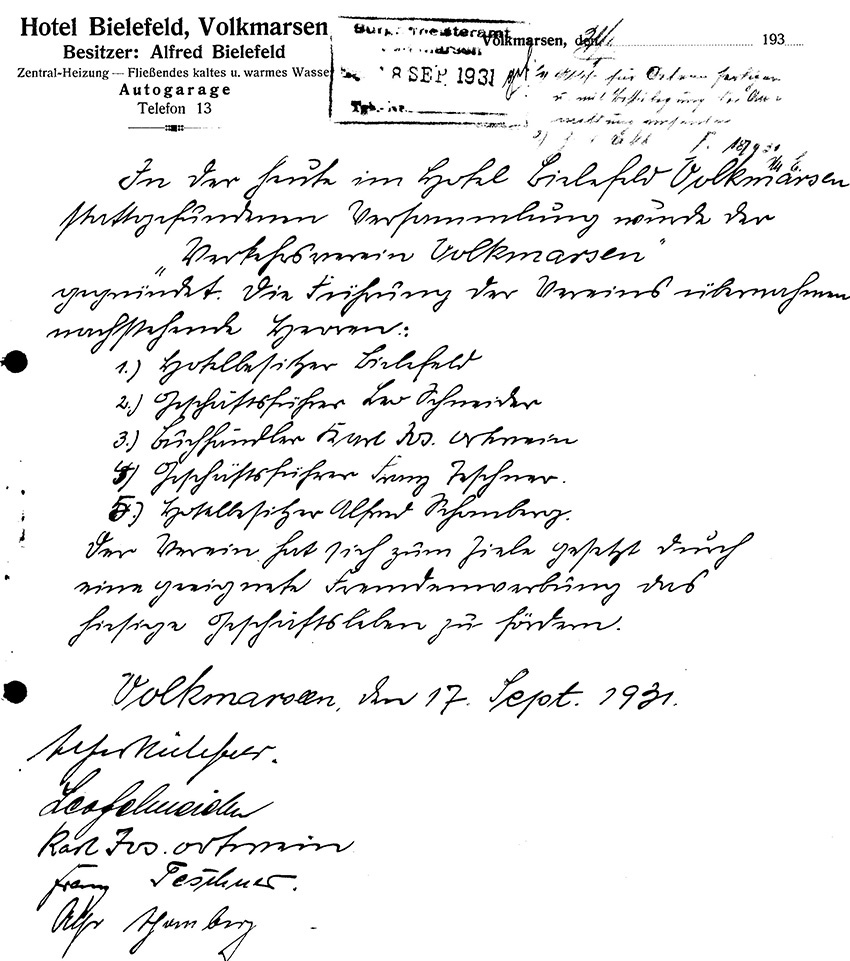 Hotel Bielefeld, Volkmarsen
Besitzer: Alfred Bielefeld
Zentral-Heizung — Fließendes kaltes u. warmes Wasser
Autogarage
Telefon 13
Bürgermeisteramt
Volkmarsen
18 SEP. 1931
Tgb.-Nr.
Volkmarsen, den 193
In der heute im Hotel Bielefeld Volkmarsen
stattgefundenen Versammlung wurde der
„Verkehrsverein Volkmarsen"
gegründet. Die Führung der Vereins übernahmen
nachstehende Herren:
1.) Hotelbesitzer Bielefeld
2.) Geschäftsführer Leo Schneider
3.) Buchhändler Karl Jos. Ortwein
4) Geschäftsführer Franz Teschner.
5.) Hotelbesitzer Alfred Schomberg.
Der Verein hat sich zum Ziele gesetzt durch
eine geeignete Fremdenwerbung das
hiesige Geschäftsleben zu fördern.
Volkmarsen, den 17. Sept. 1931.
Leo Schneider
Karl Jos. Ortwein
Franz Teschner.
Alfr Schomberg